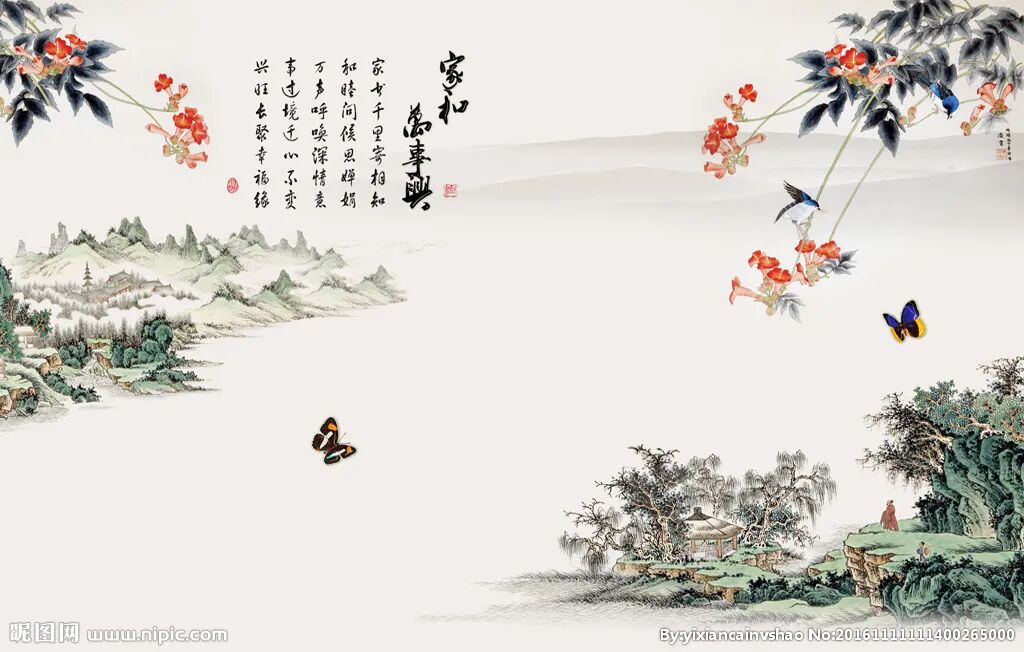 家和
萬事興
家书千里寄相知
和睦问候思婵娟
万声呼唤深情意
事过境迁心不变
兴旺长聚幸福缘
昵图网 www.nipic.com
By:yixiancainvshao No:20161111111400265000